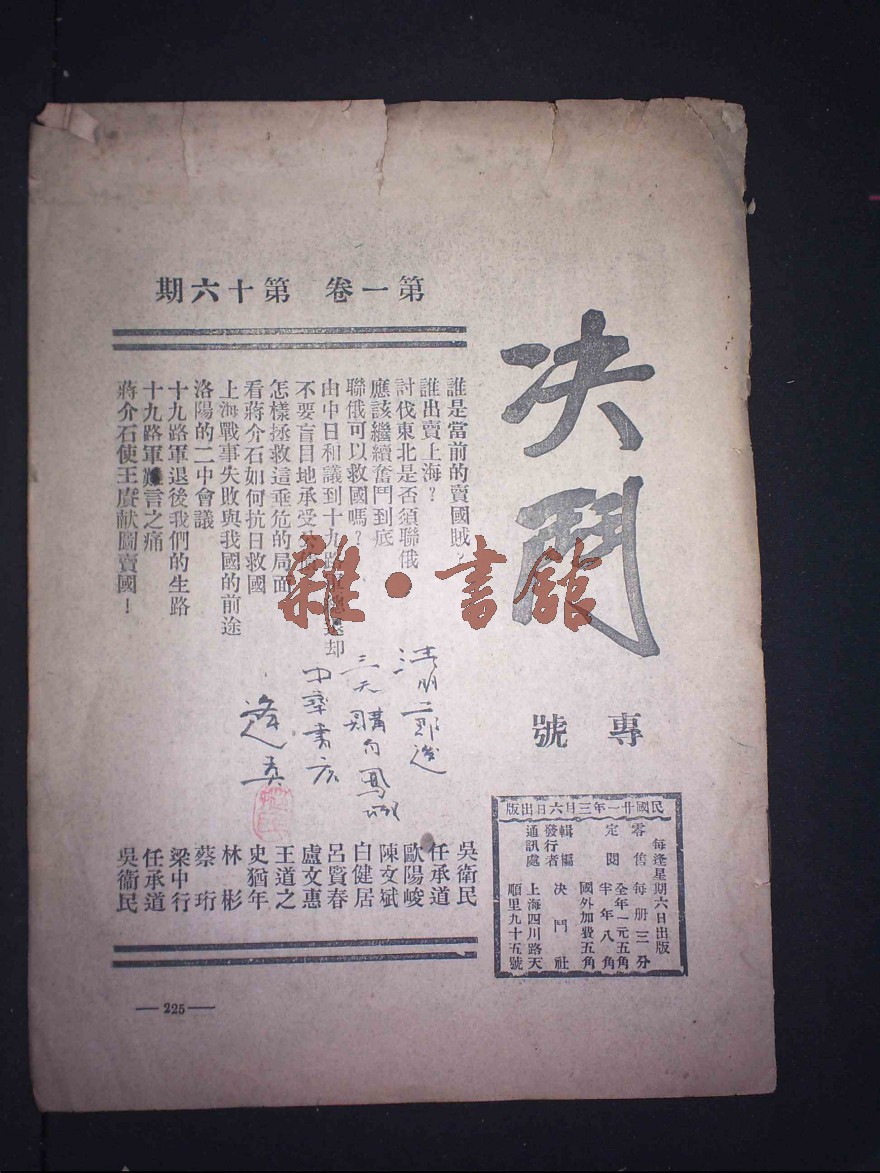 決鬥
專號
第一卷 第十六期
誰是當前的賣國賊?
誰出賣上海?
討伐東北是否須聯俄
應該繼續奮鬥到底
聯俄可以救國嗎?
由中日和議到十九路 却
不要盲目地承受
怎樣拯救這垂危的局面
看蔣介石如何抗日救國
上海戰事失敗與我國的前途
洛陽的二中會議
十九路軍退後我們的生路
十九路軍難言之痛
蔣介石使王賡献圖賣國!
吳衛民
任承道
歐陽峻
陳文斌
白健居
呂賢春
盧文惠
王道之
史猶年
林彬
蔡珩
梁中行
任承道
吳衞民
三元購句
書店
民國廿一年三月六日出版
每逢星期六日出版
零售每册三分
定閱 全年一元五角
半年八角
國外加費五角
編輯發行者 决鬥社
通訊處 上海四川路天順里九十五號
—225—
雜·書館